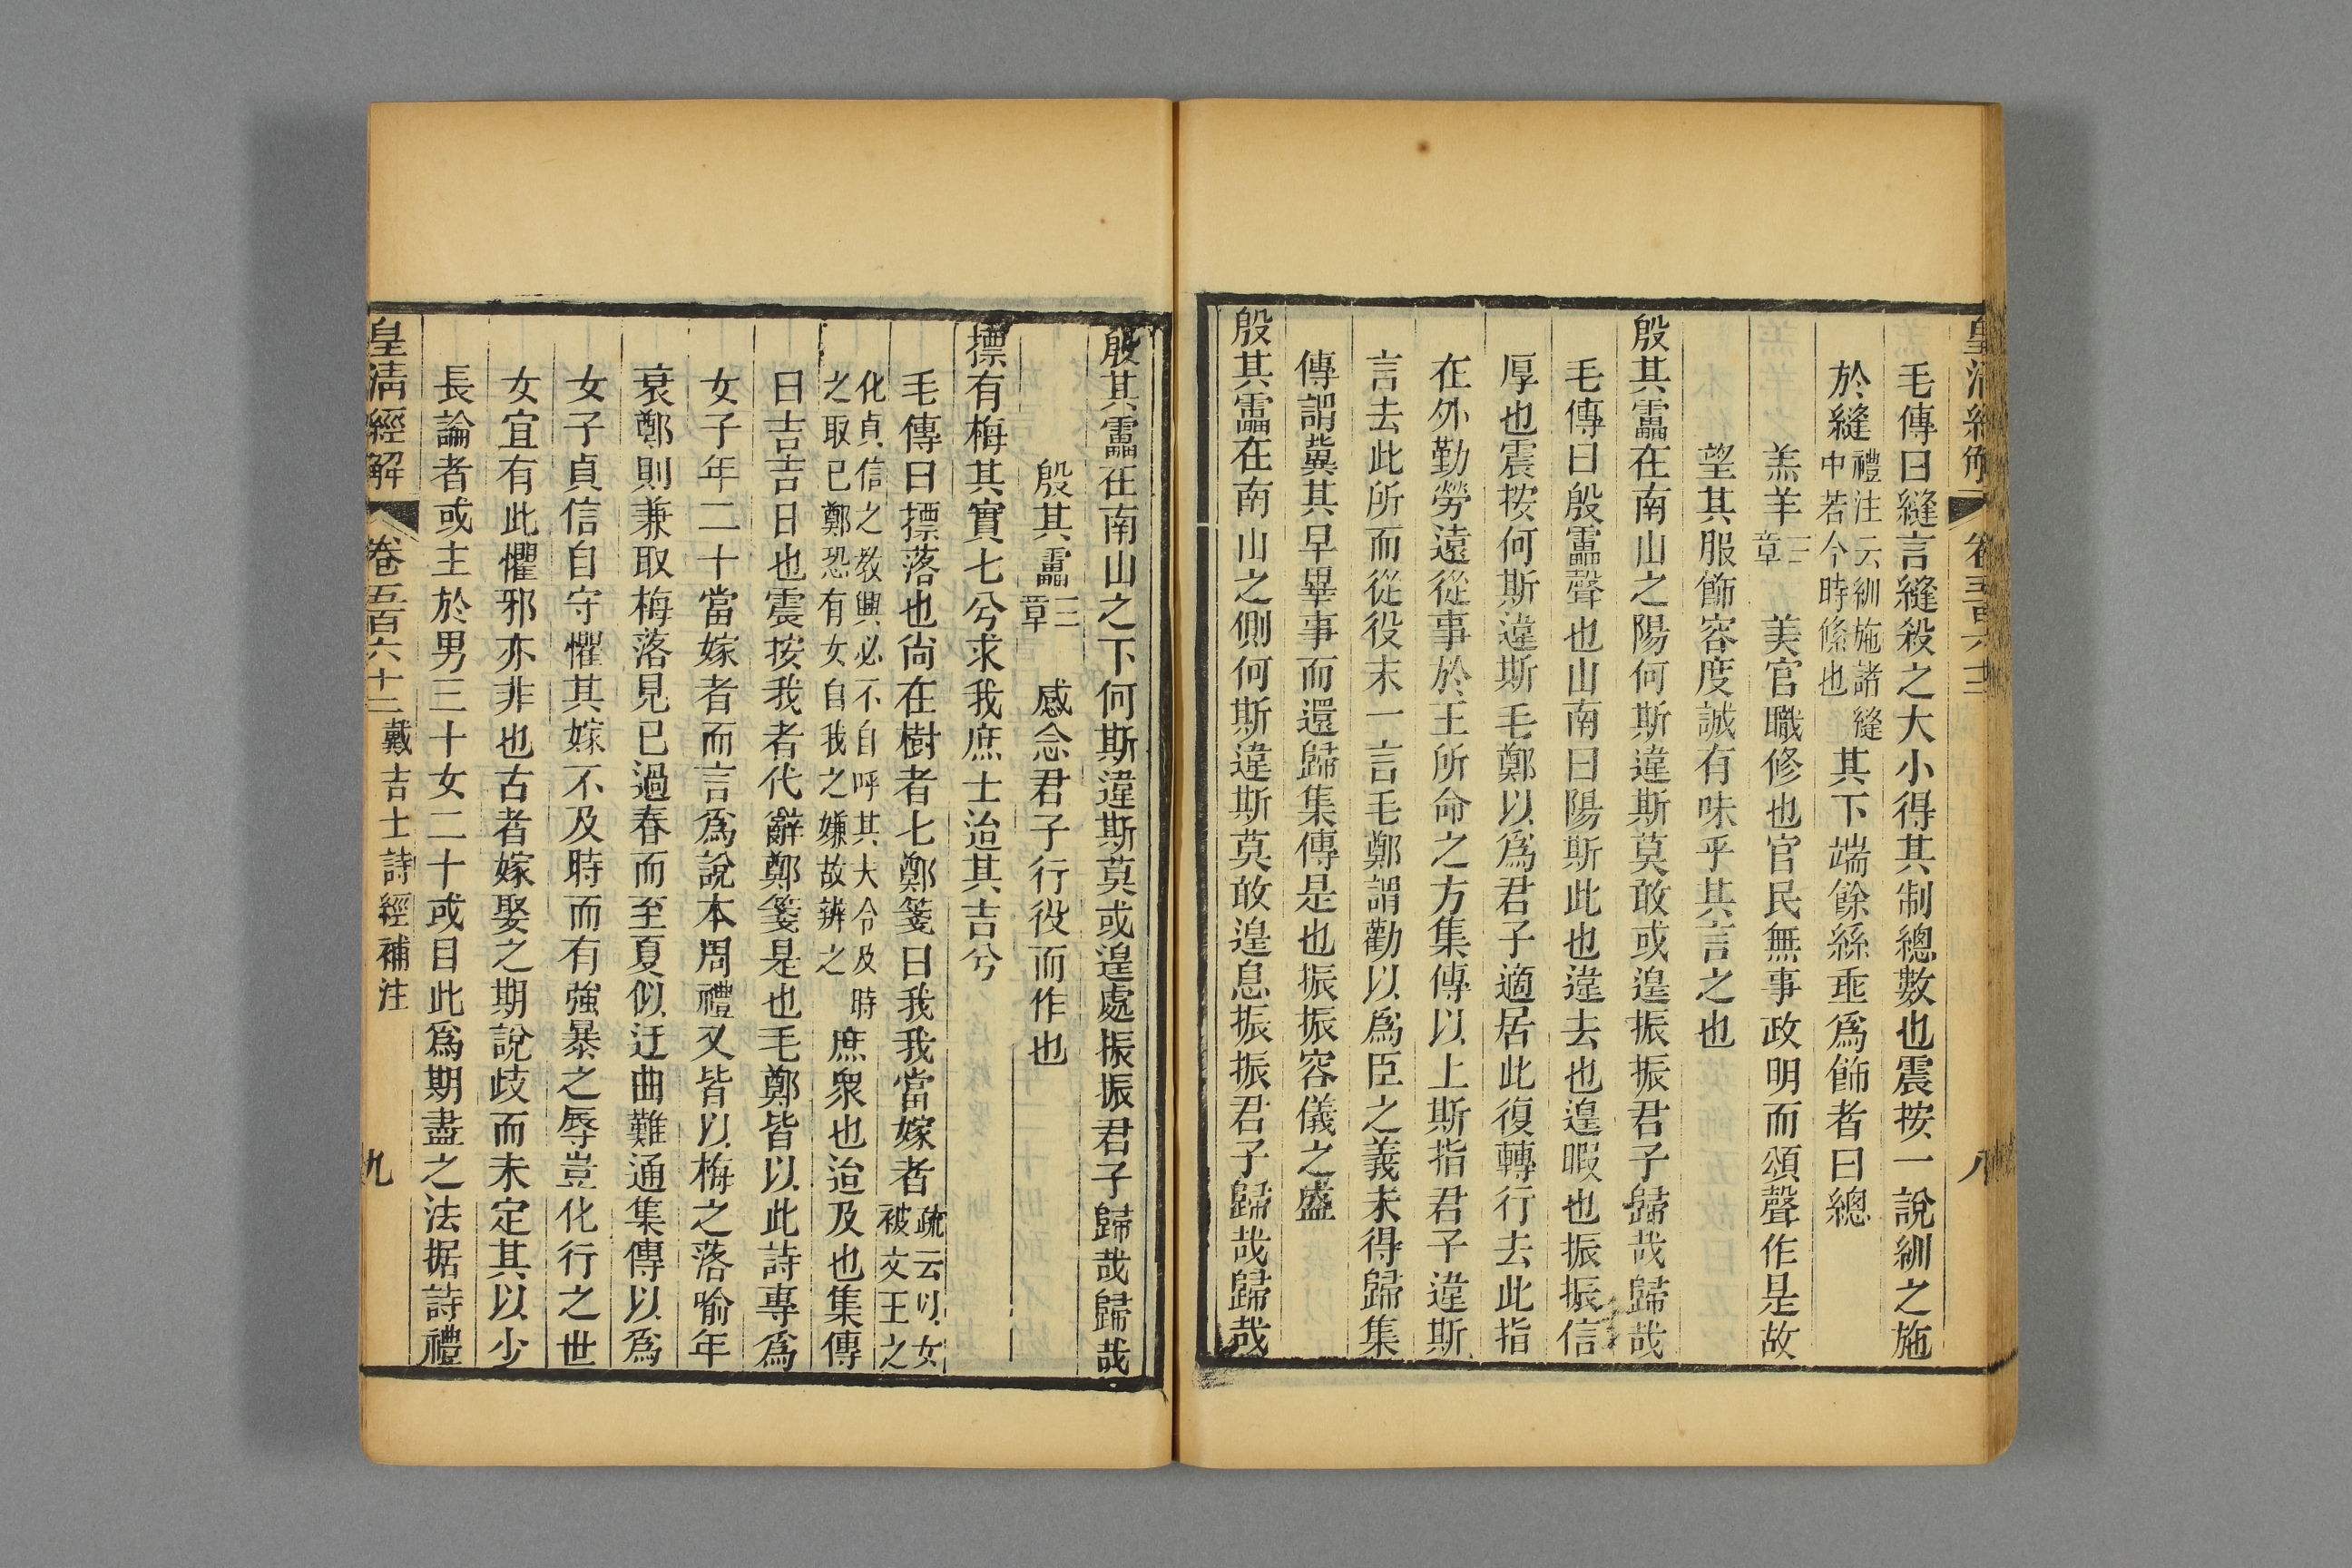 毛傳曰縫言縫殺之大小得其制總數也震按一說紃之施
於縫禮注云紃施諸縫中若今時絛也其下端餘絲垂爲飾者曰總
羔羊三章　美官職修也官民無事政明而頌聲作是故
望其服飾容度誠有味乎其言之也
殷其靁在南山之陽何斯違斯莫敢或遑振振君子歸哉歸哉
毛傳曰殷靁聲也山南曰陽斯此也違去也遑暇也振振信
厚也震按何斯違斯毛鄭以爲君子適居此復轉行去此指
在外勤勞遠從事於王所命之方集傳以上斯指君子違斯
言去此所而從役末一言毛鄭謂勸以爲臣之義未得歸集
傳謂冀其早畢事而還歸集傳是也振振容儀之盛
殷其靁在南山之側何斯違斯莫敢遑息振振君子歸哉歸哉
八
殷其靁在南山之下何斯違斯莫或遑處振振君子歸哉歸哉
殷其靁三章　感念君子行役而作也
摽有梅其實七兮求我庶士迨其吉兮
毛傳曰摽落也尙在樹者七鄭箋曰我我當嫁者疏云以女被文王之
化貞信之敎興必不自呼其大令及時之取已鄭恐有女自我之嫌故辨之庶眾也迨及也集傳
曰吉吉日也震按我者代辭鄭箋是也毛鄭皆以此詩專爲
女子年二十當嫁者而言爲說本周禮又皆以梅之落喻年
衰鄭則兼取梅落見已過春而至夏似迂曲難通集傳以爲
女子貞信自守懼其嫁不及時而有強暴之辱豈化行之世
女宜有此懼邪亦非也古者嫁娶之期說歧而未定其以少
長論者或主於男三十女二十或目此爲期盡之法据詩禮
皇淸經解　卷五百六十二　戴吉士詩經補注　九